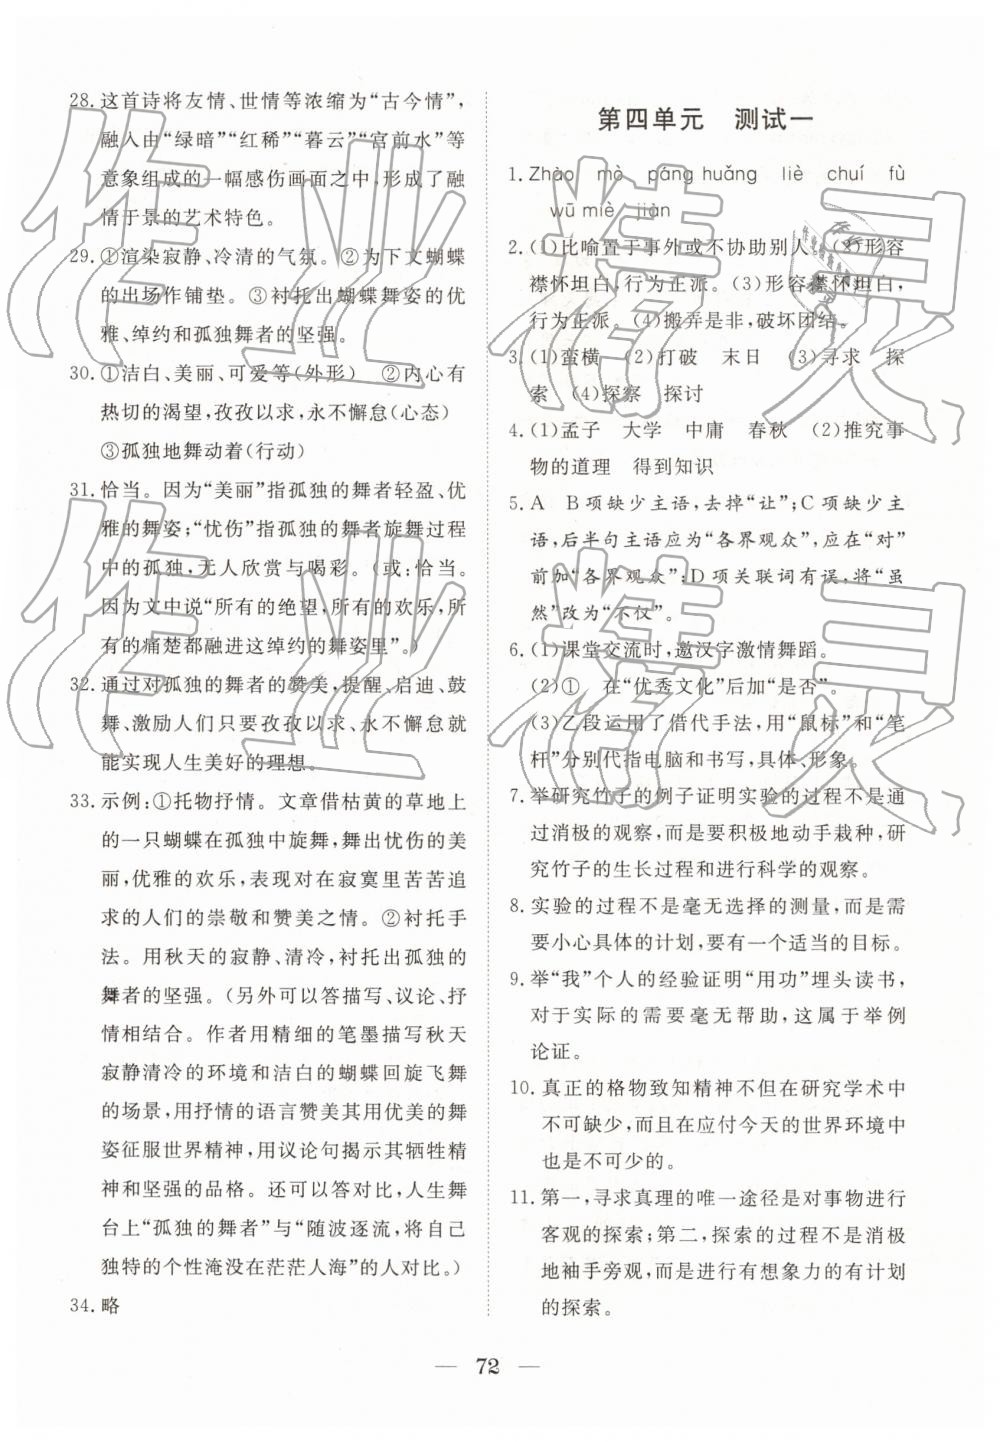 28. 这首诗将友情、世情等浓缩为“古今情”，
融入由“绿暗”“红稀”“暮云”“宫前水”等
意象组成的一幅感伤画面之中，形成了融
情于景的艺术特色。
29. ①渲染寂静、冷清的气氛。②为下文蝴蝶
的出场作铺垫。③衬托出蝴蝶舞姿的优
雅、绰约和孤独舞者的坚强。
30. ①洁白、美丽、可爱等(外形)　②内心有
热切的渴望，孜孜以求，永不懈怠(心态)
③孤独地舞动着(行动)
31. 恰当。因为“美丽”指孤独的舞者轻盈、优
雅的舞姿；“忧伤”指孤独的舞者旋舞过程
中的孤独，无人欣赏与喝彩。(或：恰当。
因为文中说“所有的绝望，所有的欢乐，所
有的痛楚都融进这绰约的舞姿里”。)
32. 通过对孤独的舞者的赞美，提醒、启迪、鼓
舞、激励人们只要孜孜以求、永不懈怠就
能实现人生美好的理想。
33. 示例：①托物抒情。文章借枯黄的草地上
的一只蝴蝶在孤独中旋舞，舞出忧伤的美
丽，优雅的欢乐，表现了在寂寞里苦苦追
求的人们的崇敬和赞美之情。②衬托手
法。用秋天的寂静、清冷，衬托出孤独的
舞者的坚强。(另外可以答描写、议论、抒
情相结合。作者用精细的笔墨描写秋天
寂静清冷的环境和洁白的蝴蝶回旋飞舞
的场景，用抒情的语言赞美其用优美的舞
姿征服世界精神，用议论句揭示其牺牲精
神和坚强的品格。还可以答对比，人生舞
台上“孤独的舞者”与“随波逐流，将自己
独特的个性淹没在茫茫人海”的人对比。)
34. 略
第四单元　测试一
1. Zhào　mò　páng huǎng　liè　chuí　fù
wū miè　jiàn
2. (1)比喻置于事外或不协助别人。(2)形容
襟怀坦白，行为正派。(3)形容襟怀坦白，
行为正派。(4)搬弄是非，破坏团结。
3. (1)蛮横　(2)打破　末日　(3)寻求　探
索　(4)探察　探讨
4. (1)孟子　大学　中庸　春秋　(2)推究事
物的道理　得到知识
5. A　B项缺少主语，去掉“让”；C项缺少主
语，后半句主语应为“各界观众”，应在“对”
前加“各界观众”；D项关联词有误，将“虽
然”改为“不仅”。
6. (1)课堂交流时，邀汉字激情舞蹈。
(2)①　在“优秀文化”后加“是否”。
(3)乙段运用了借代手法，用“鼠标”和“笔
杆”分别代指电脑和书写，具体、形象。
7. 举研究竹子的例子证明实验的过程不是通
过消极的观察，而是要积极地动手栽种，研
究竹子的生长过程和进行科学的观察。
8. 实验的过程不是毫无选择的测量，而是需
要小心具体的计划，要有一个适当的目标。
9. 举“我”个人的经验证明“用功”埋头读书，
对于实际的需要毫无帮助，这属于举例
论证。
10. 真正的格物致知精神不但在研究学术中
不可缺少，而且在应付今天的世界环境中
也是不可少的。
11. 第一，寻求真理的唯一途径是对事物进行
客观的探索；第二，探索的过程不是消极
地袖手旁观，而是有想象力的有计划
的探索。
— 72 —
作业精灵
作业精灵